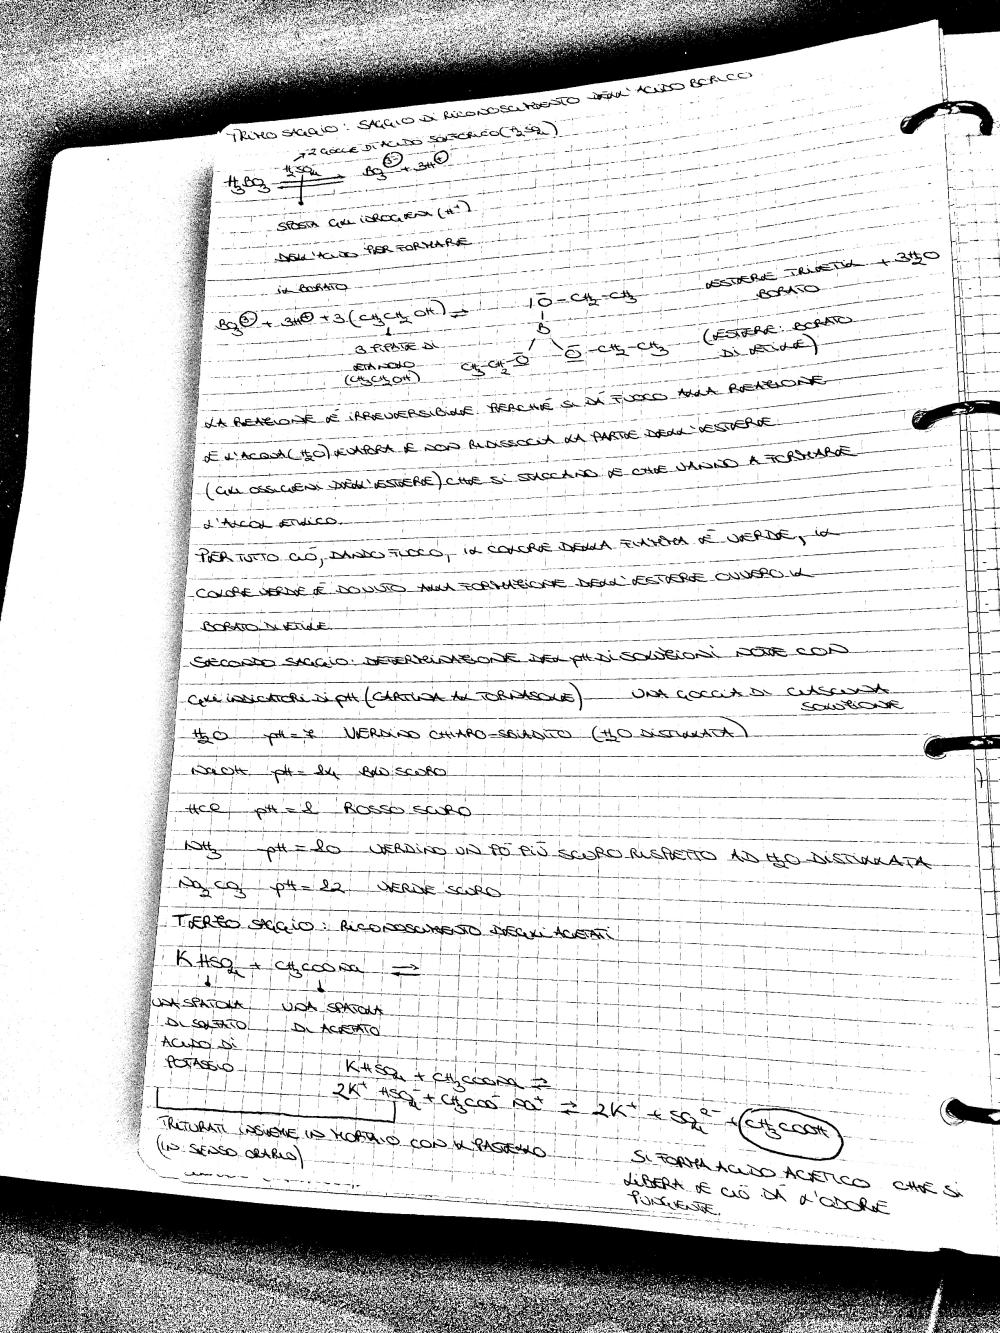 PRIMO SAGGIO: SAGGIO DI RICONOSCIMENTO DELL'ACIDO BORICO
→ 2 GOCCE DI ACIDO SOLFORICO (H₂SO₄)
H₃BO₃ H₂SO₄ ⇌ BO₃³⁻ + 3H⁺
SPOSTA GLI IDROGENI (H⁺)
DELL'ACIDO PER FORMARE
IL BORATO
BO₃³⁻ + 3H⁺ + 3(CH₃CH₂OH) ⇌
3 PIPATE DI
ETANOLO
(CH₃CH₂OH)
O-CH₂-CH₃
B
CH₃-CH₂-O O-CH₂-CH₃
ESTERE TRIETIL + 3H₂O
BORATO
(ESTERE BORATO
DI ETILE)
LA REAZIONE È IRREVERSIBILE PERCHÉ SI DÀ FUOCO ALLA REAZIONE
E L'ACQUA (H₂O) EVAPORA E NON RIDISSOCIA LA PARTE DELL'ESTERE
(GLI OSSIGENI DELL'ESTERE) CHE SI STACCANO E CHE VANNO A FORMARE
L'ALCOL ETILICO.
PER TUTTO CIÒ, DANDO FUOCO, IL COLORE DELLA FIAMMA È VERDE, IL
COLORE VERDE È DOVUTO ALLA FORMAZIONE DELL'ESTERE OVVERO IL
BORATO DI ETILE.
SECONDO SAGGIO: DETERMINAZIONE DEL pH DI SOLUZIONI NOTE CON
GLI INDICATORI DI pH (CARTINA AL TORNASOLE) UNA GOCCIA DI CIASCUNA
SOLUZIONE
H₂O pH = 7 VERDINO CHIARO-SBIADITO (H₂O DISTILLATA)
NaOH pH = 14 BLU SCURO
HCl pH = 1 ROSSO SCURO
NH₃ pH = 10 VERDINO UN PÒ PIÙ SCURO RISPETTO AD H₂O DISTILLATA
Na₂CO₃ pH = 12 VERDE SCURO
TERZO SAGGIO: RICONOSCIMENTO DEGLI ACETATI
KHSO₄ + CH₃COONa ⇌
UNA SPATOLA UNA SPATOLA
DI SOLFATO DI ACETATO
ACIDO DI
POTASSIO
KHSO₄ + CH₃COONa ⇌
2K⁺ HSO₄⁻ + CH₃COO⁻ Na⁺ ⇌ 2K⁺ + SO₄²⁻ + CH₃COOH
TRITURATI INSIEME IN MORTAIO CON IL PASTELLO
(IN SENSO ORARIO)
SI FORMA ACIDO ACETICO CHE SI
LIBERA E CIÒ DÀ L'ODORE
PUNGENTE.